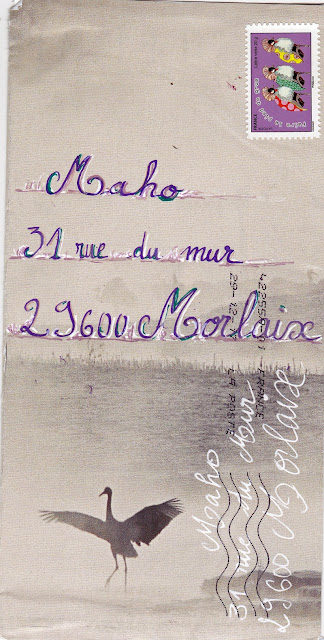 Maho
31 rue du mur
29600 Morlaix
FRANCE
FRANCE
LA POSTE
Maho
31 rue du Mur
29600 Morlaix